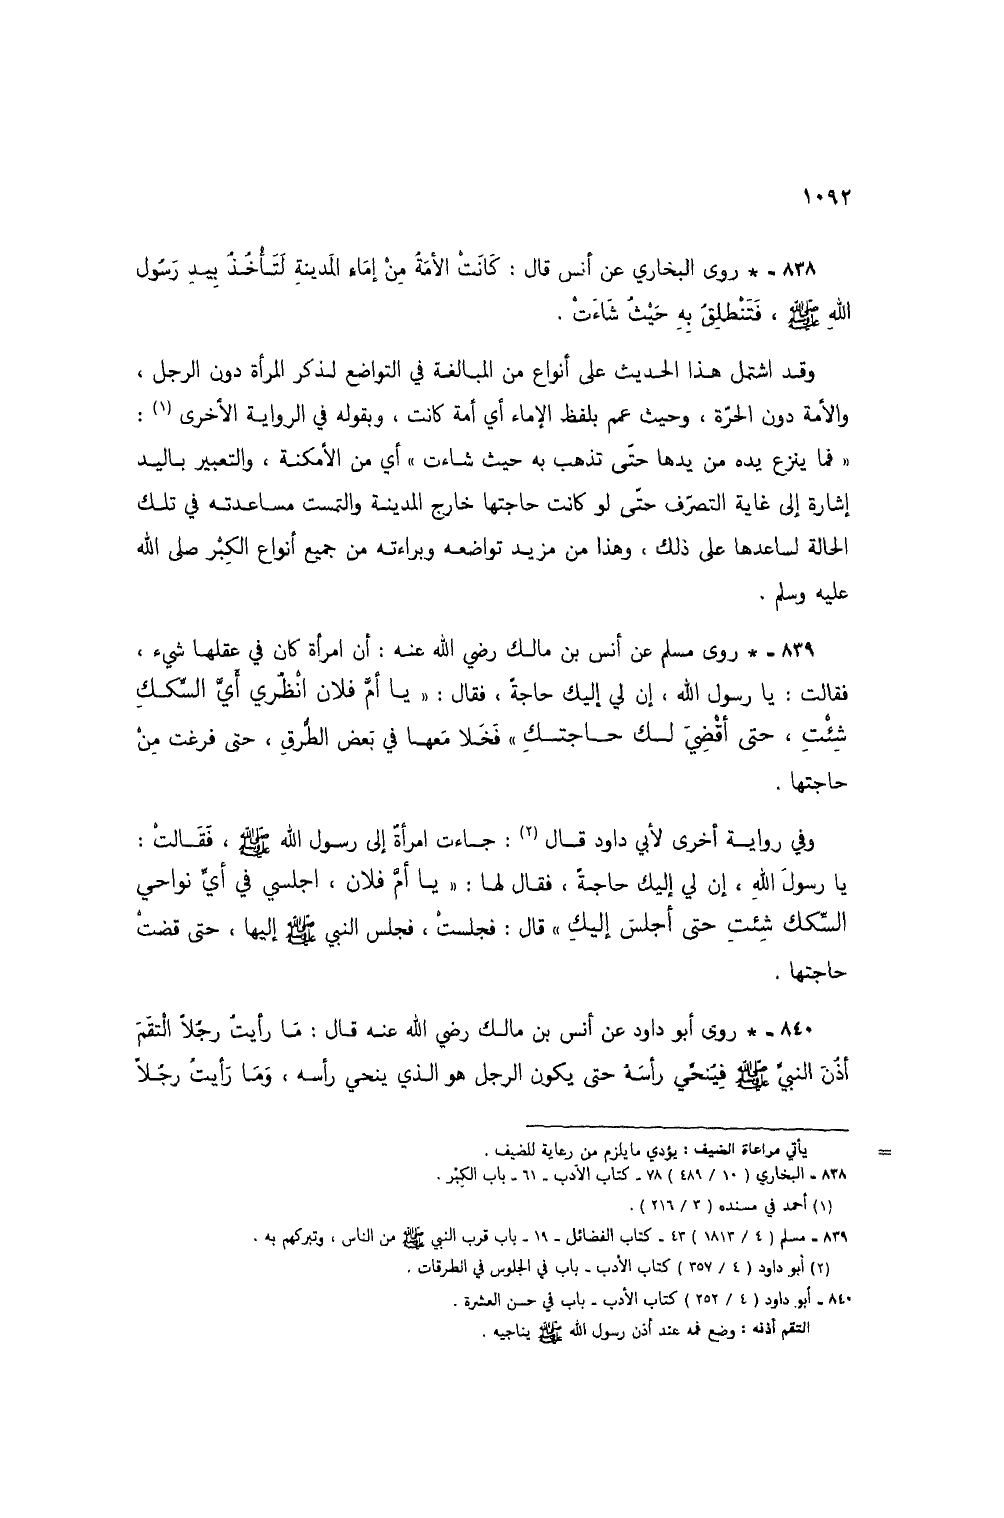 ١٠٩٢
٨٣٨ - * روى البخاري عن أنس قال : كَانَتْ الأمَةُ مِنْ إمَاء المَدينةِ لَتَـأْخُـذُ بِيـدِ رَسُول
اللهِ ﷺ ، فَتَنْطلِقُ بِهِ حَيْثُ شَاءَتْ .
وقـد اشتمل هـذا الحـديث على أنواع من المبـالغـة في التواضع لـذكر المرأة دون الرجل ،
والأمة دون الحرّة ، وحيث عمم بلفظ الإماء أي أمة كانت ، وبقوله في الروايـة الأخرى (١) :
« فما ينزع يده من يدها حتّى تذهب به حيث شـاءت » أي من الأمكنـة ، والتعبير بـاليـد
إشارة إلى غاية التصرّف حتّى لو كانت حاجتها خارج المدينـة والتمست مسـاعـدتـه في تلـك
الحالة لساعدها على ذلك ، وهذا من مزيـد تواضعـه وبراءتـه من جميع أنواع الكِبْر صلى الله
عليه وسلم .
٨٣٩ - * روى مسلم عن أنس بن مالـك رضي الله عنـه : أن امرأة كان في عقلهـا شيء ،
فقالت : يا رسول الله ، إن لي إليك حاجةً ، فقال : « يـا أمَّ فلان انْظُري أَيَّ السِّكـكِ
شِئْتِ ، حتى أقْضِيَ لـك حـاجتـكِ » فَخَلا مَعهـا في بَعض الطُّرقِ ، حتى فرغت مِنْ
حاجتها .
وفي روايـة أخرى لأبي داود قـال (٢) : جـاءت امرأةٌ إلى رسـول الله ﷺ ، فَقَـالتْ :
يا رسولَ اللهِ ، إن لي إليك حاجـةً ، فقـال لهـا : « يـا أمَّ فلان ، اجلسي في أيِّ نواحي
السِّككِ شِئتِ حتى أجلسَ إليكِ » قال : فجلستْ ، فجلس النبي ﷺ إليها ، حتى قضتْ
حاجتها .
٨٤٠ - * روى أبو داود عن أنس بن مالـك رضي الله عنـه قـال : مَـا رأيتُ رجُلاً الْتقَمَ
أذُنَ النبيِّ ﷺ فيُنحِّي رأسَهُ حتى يكون الرجل هو الـذي ينحي رأسـه ، وَمَـا رَأيتُ رجُـلاً
= يأتي مراعاة الضيف : يؤدي مايلزم من رعاية للضيف .
٨٣٨ - البخاري ( ١٠ / ٤٨٩ ) ٧٨ - كتاب الأدب - ٦١ - باب الكِبْر .
(١) أحمد في مسنده ( ٣ / ٢١٦ ) .
٨٣٩ - مسلم ( ٤ / ١٨١٣ ) ٤٣ - كتاب الفضائل - ١٩ - باب قرب النبي ﷺ من الناس ، وتبركهم به .
(٢) أبو داود ( ٤ / ٣٥٧ ) كتاب الأدب - باب في الجلوس في الطرقات .
٨٤٠ - أبو داود ( ٤ / ٢٥٢ ) كتاب الأدب - باب في حسن العشرة .
التقم أذنه : وضع فمه عند أذن رسول الله ﷺ يناجيه .